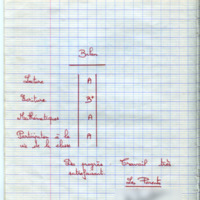 Bilan
Lecture A
Ecriture B+
Mathématiques A
Participation à la A
vie de la classe
Des progrès Travail très
satisfaisant
Les Parents